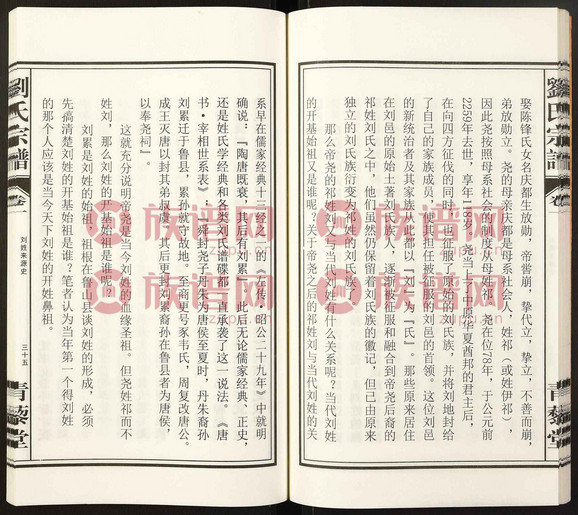 劉氏宗譜
卷一
青藜堂
娶陈锋氏女名庆都生放勋,帝喾崩,挚代立,挚立,不善而崩,
弟放勋立。尧的母亲庆都是母系社会人,姓祁(或姓伊祁),
因此尧按照母系社会的制度从母姓祁。尧在位78年,于公元前
2259年去世,享年118岁。尧当上了中原华夏酋邦的君主后,
在向四方征伐的同时,也征服了原始的刘氏族,并将刘地封给
了自己的家族成员,使其担任被征服的刘邑的首领。这位刘邑
的新统治者及其家族从此都以「刘」为「氏」。那些原来居住
在刘邑的原始土著刘氏族人,逐渐被征服和融合到帝尧后裔的
祁姓刘氏之中,他们虽然仍保留着刘氏族的徽记,但己由原来
独立的刘氏族衍变为祁姓的刘氏族。
那么帝尧的祁姓刘又与当代刘姓有什么关系呢?当代刘姓
的开基始祖又是谁呢?关于帝尧之后的祁姓刘与当代刘姓的关
系早在儒家经典十三经之一的《左传·昭公二十九年》中就明
确说:『陶唐既衰,其后有刘累』,此后无论儒家经典、正史,
还是姓氏学经典和各类刘氏谱牒都一直承袭了这一说法。《唐
书·宰相世系表》:『舜封尧子丹朱为唐侯至夏时,丹朱裔孙
刘累迁于鲁县,累孙就守故地。至商更号豕韦氏,周复改唐公。
成王灭唐以封其弟叔虞,其后更封刘累裔孙在鲁县者为唐侯,
以奉尧祠』。
这就充分说明帝尧是当今刘姓的血缘圣祖。但尧姓祁而不
姓刘,那么刘姓的开基始祖是谁呢?
刘累是刘姓的始祖,祖根在鲁山县谈刘姓的形成,必须
先搞清楚刘姓的开基始祖是谁?笔者认为当年第一个得刘姓
的那个人应该是当今天下刘姓的开姓鼻祖。
劉氏宗譜
卷一
刘姓来源史
三十五
青藜堂
族谱网
族谱网
族谱网
族谱网